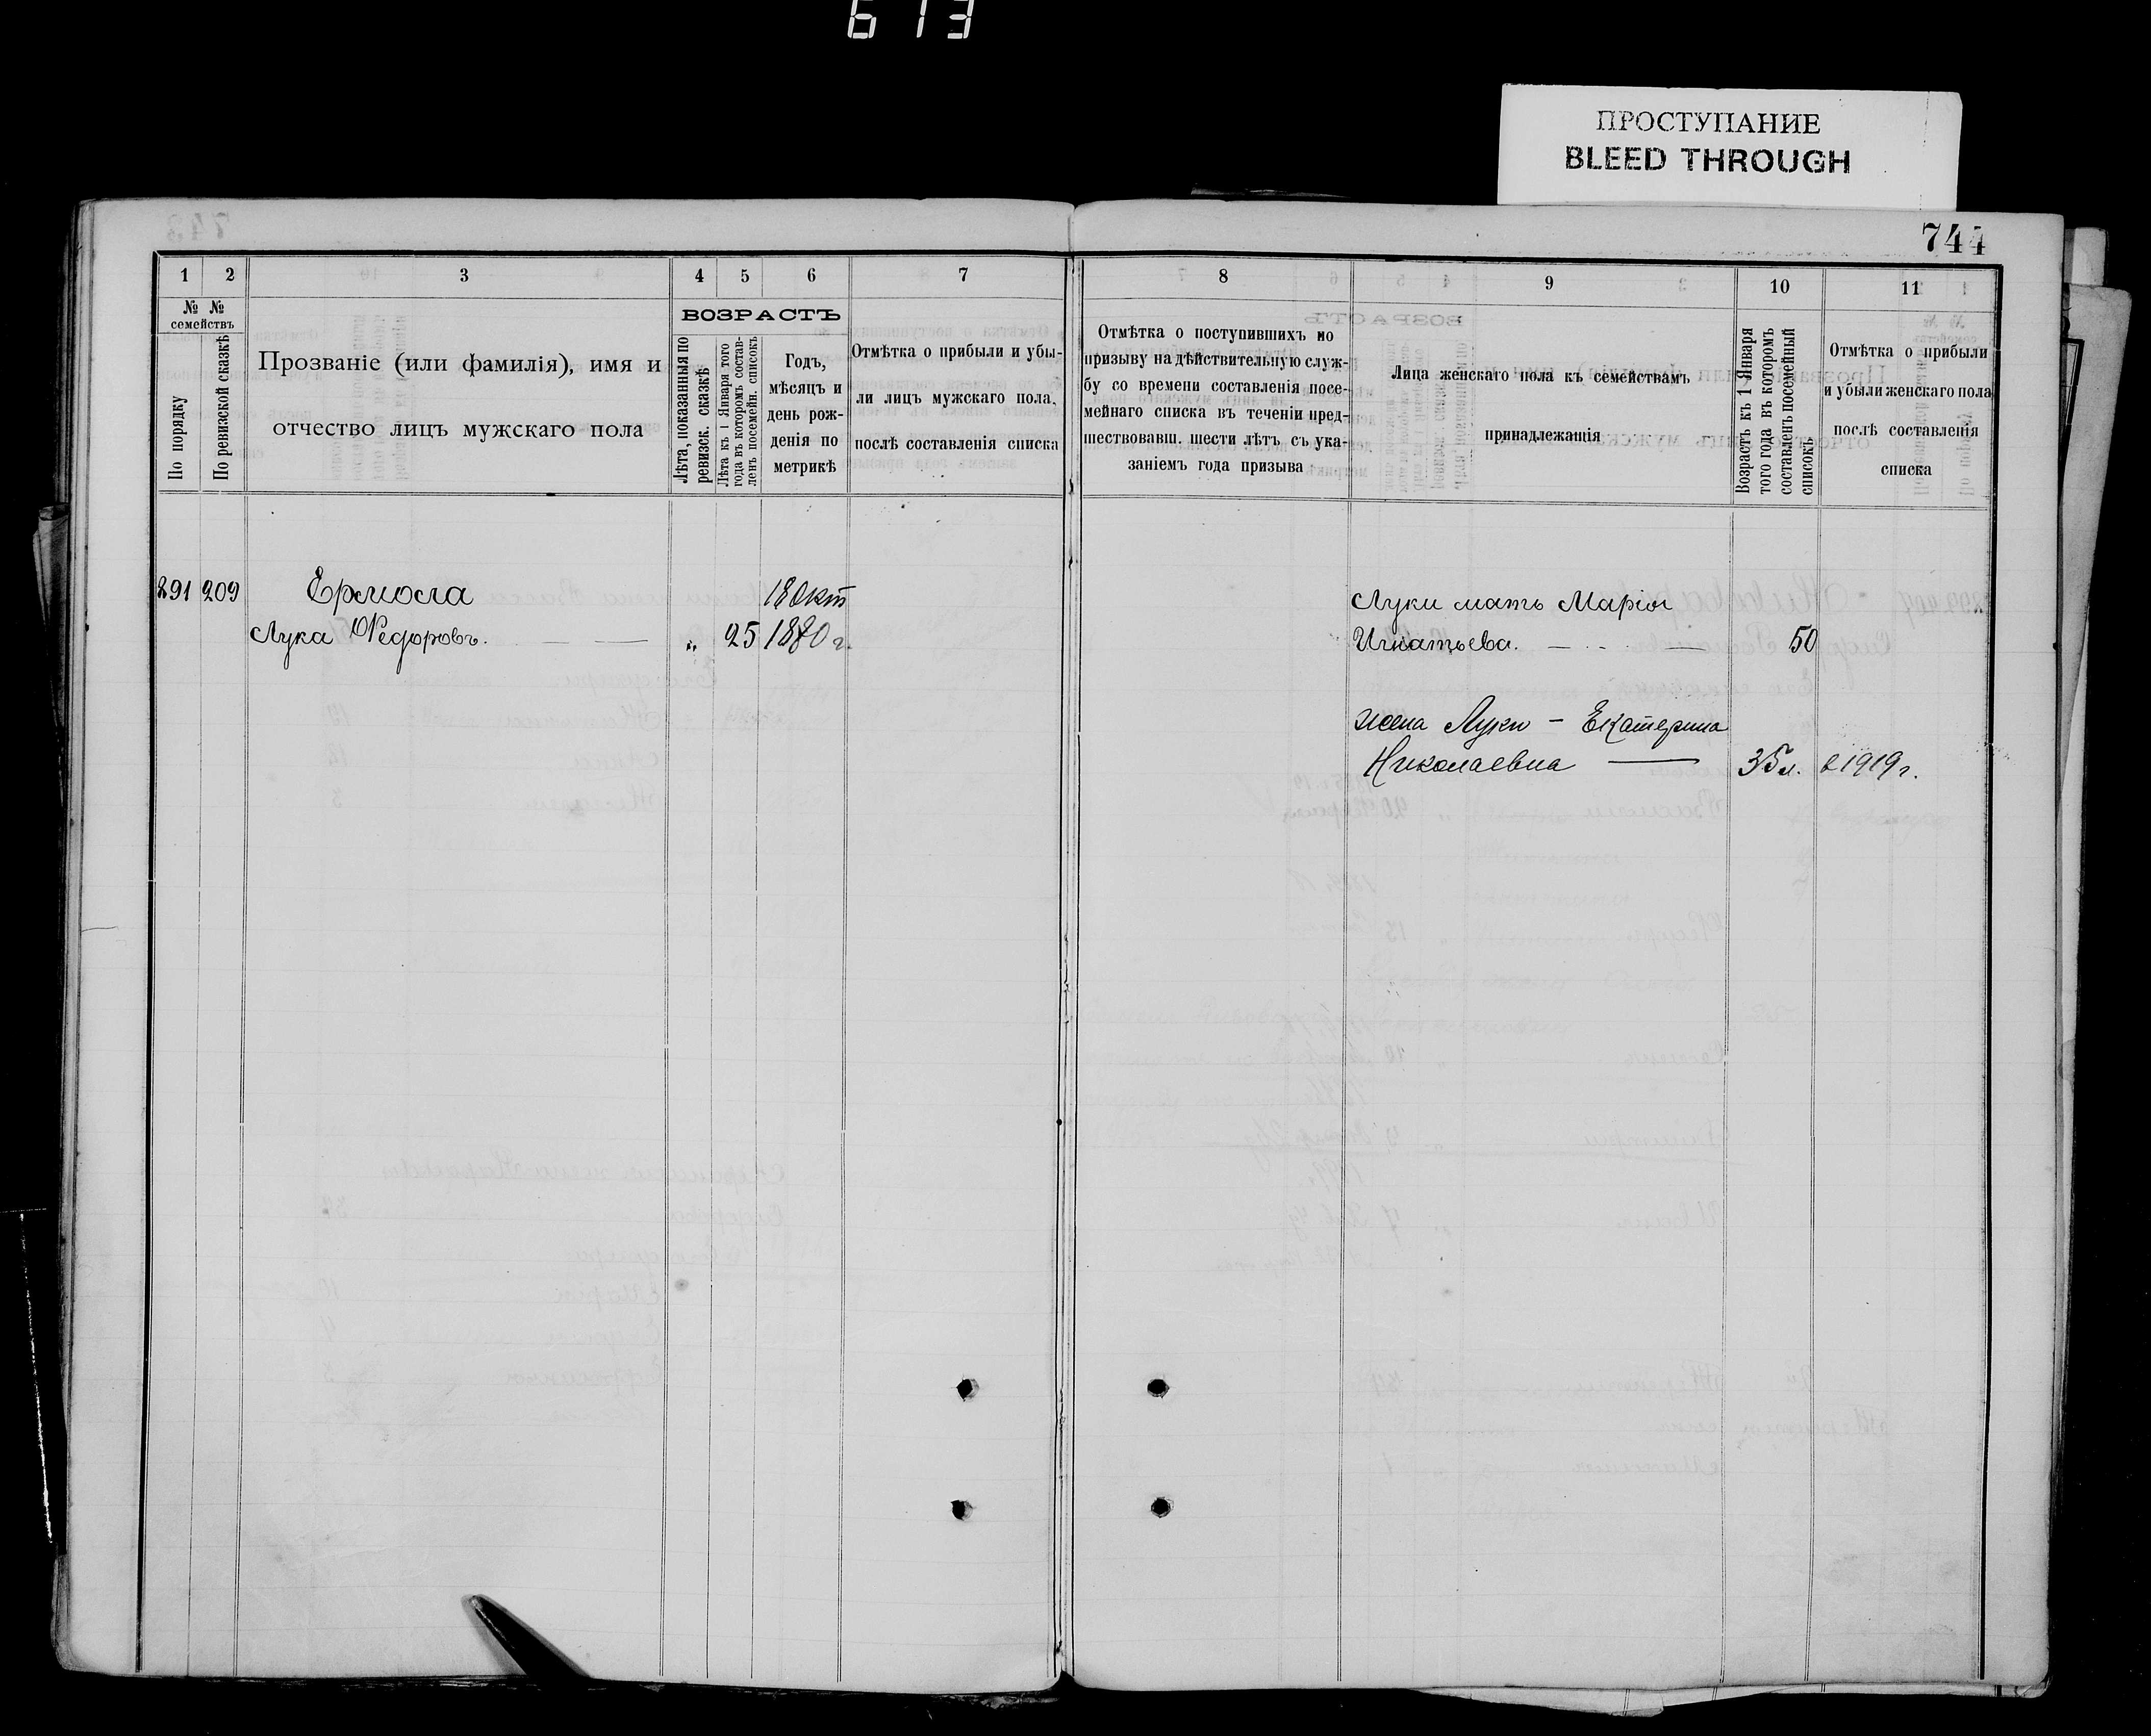 613
ПРОСТУПАНИЕ
BLEED THROUGH
744
1 2 3 4 5 6 7 8 9 10 11
№ № семействъ
По порядку
По ревизской сказкѣ
Прозваніе (или фамилія), имя и
отчество лицъ мужскаго пола
ВОЗРАСТЪ
Лѣта, показанныя по
ревизск. сказкѣ
Лѣта къ 1 Января того
года въ которомъ состав-
ленъ посемейн. списокъ
Годъ,
мѣсяцъ и
день рож-
денія по
метрикѣ
Отмѣтка о прибыли и убы-
ли лицъ мужскаго пола,
послѣ составленія списка
Отмѣтка о поступившихъ по
призыву на дѣйствительную служ-
бу со времени составленія посе-
мейнаго списка въ теченіи пред-
шествовавш. шести лѣтъ съ ука-
заніемъ года призыва
Лица женскаго пола къ семействамъ
принадлежащія
Возрастъ къ 1 Января
того года въ которомъ
составленъ посемейный
списокъ
Отмѣтка о прибыли
и убыли женскаго пола
послѣ составленія
списка
291 209 Ермола 18 Окт
Лука Ѳедоровъ. — „ 25 1870 г.
Луки мать Марія
Игнатьева. — 50
жена Луки — Екатерина
Николаевна — 35 л. в 1919 г.